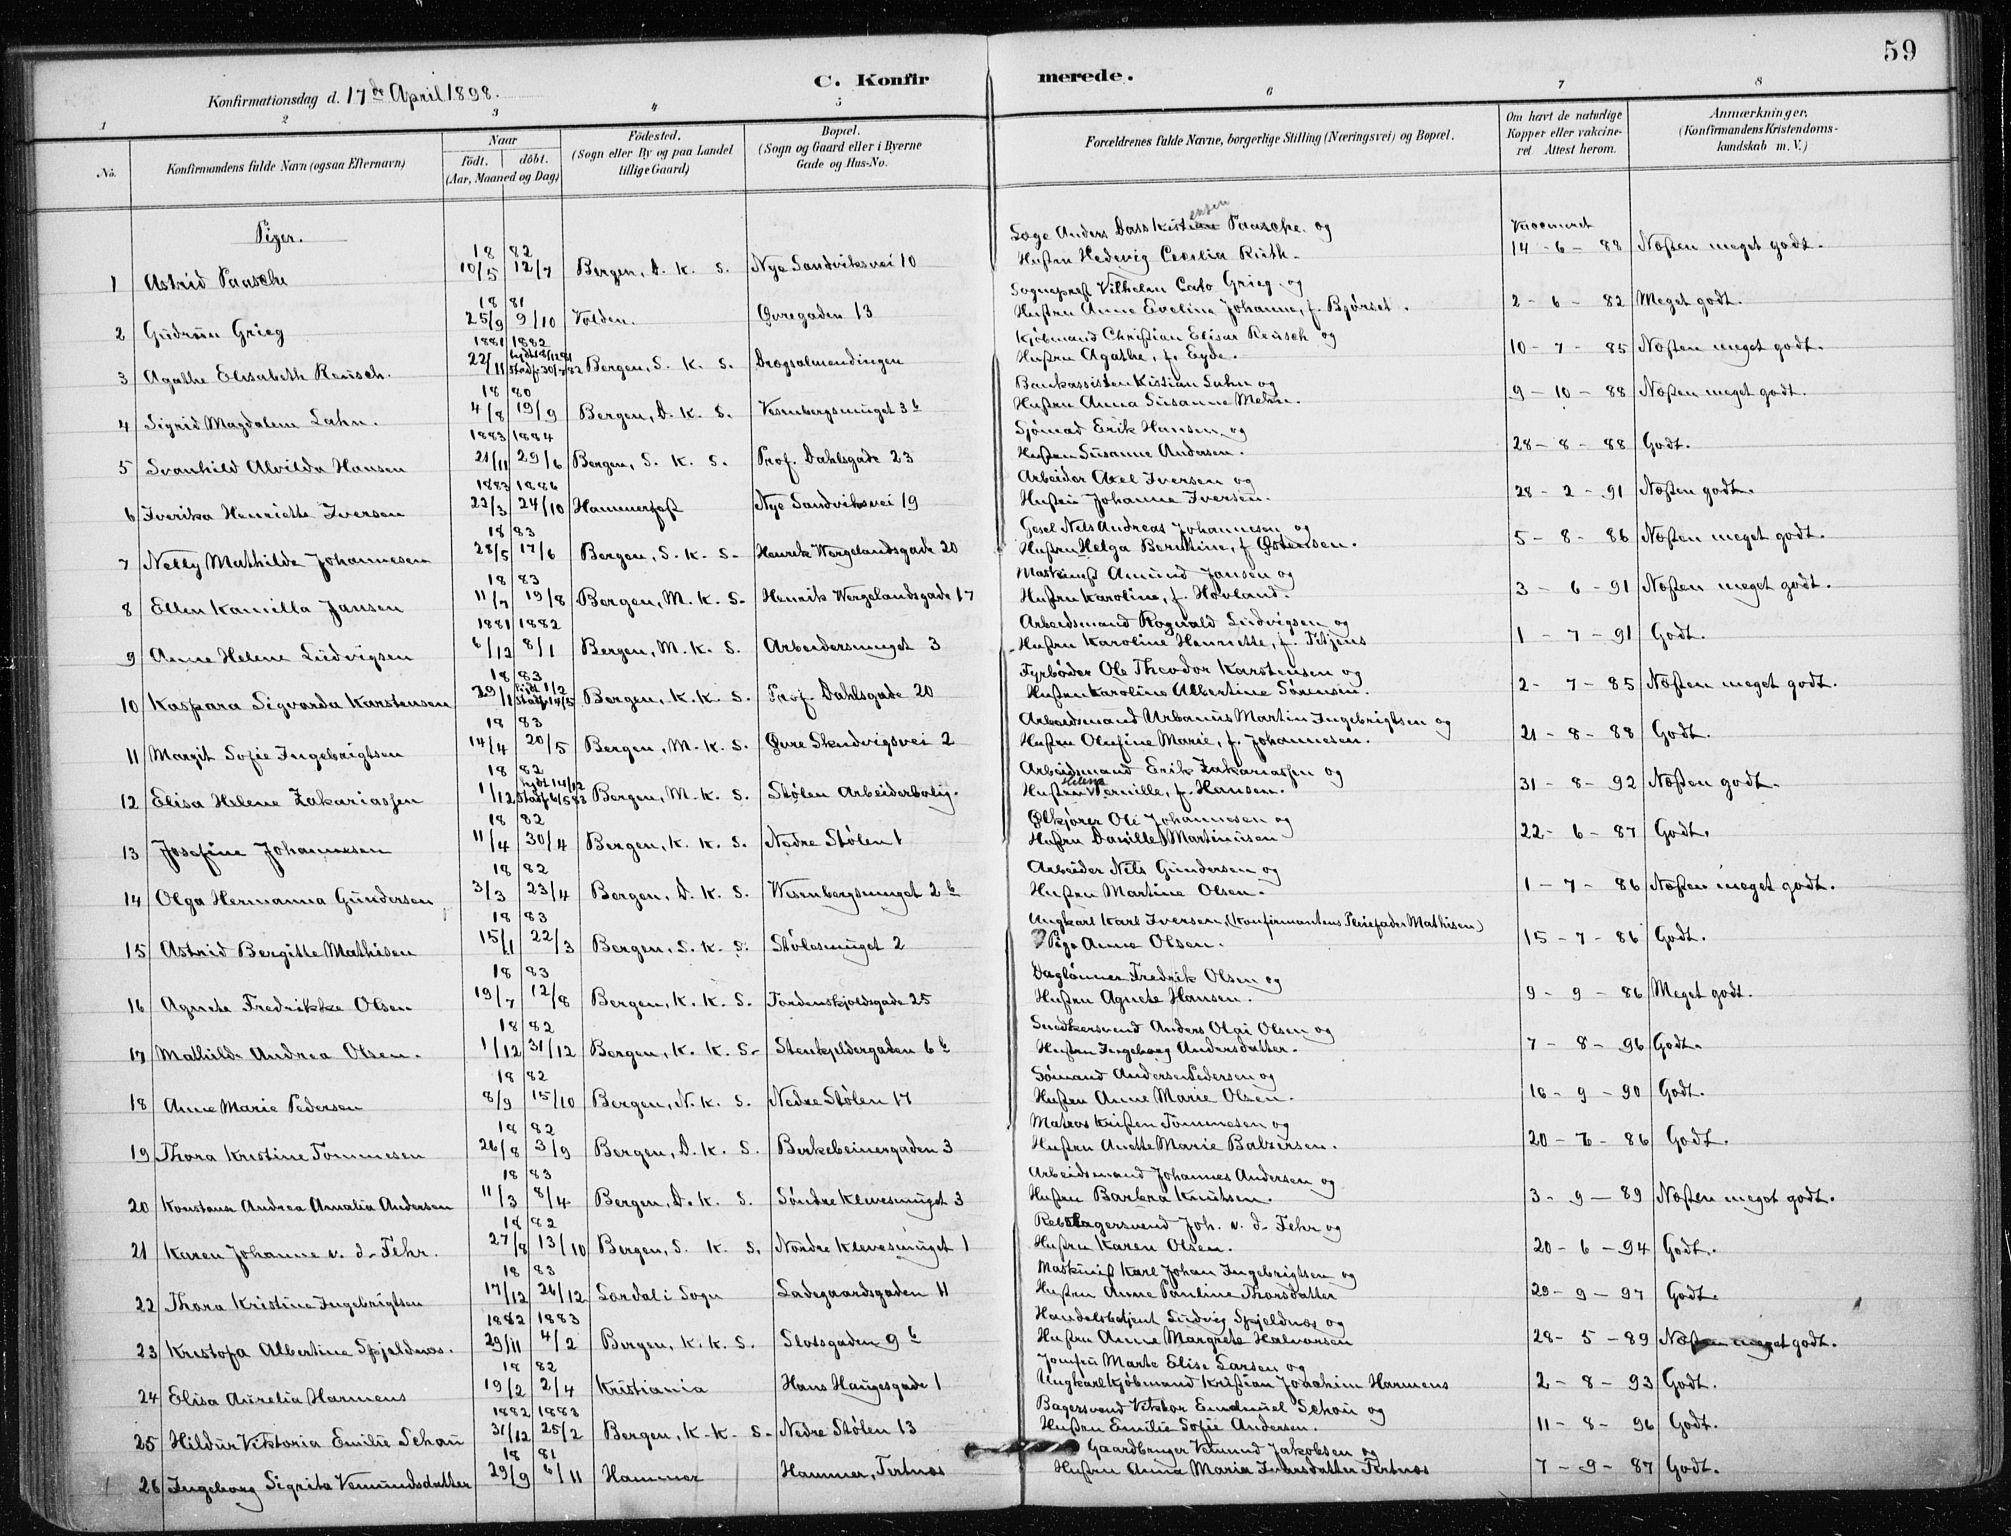 59
C. Konfirmerede.
Konfirmationsdag d. 17de April 1898.
1 2 3 4 5 6 7 8
No. Konfirmandens fulde Navn (ogsaa Efternavn) Naar födt. döbt. (Aar, Maaned og Dag) Födested. (Sogn eller By og paa Landet tillige Gaard) Bopæl. (Sogn og Gaard eller i Byerne Gade og Hus-No. Forældrenes fulde Navne, borgerlige Stilling (Næringsvei) og Bopæl. Om havt de naturlige Kopper eller vakcineret. Attest herom. Anmærkninger. (Konfirmandens Kristendomskundskab m. V.)
Piger.
1 Astrid Paasche 18 82 10/5 12/7 Bergen, D. K. S. Nye Sandviksvei 10 Læge Anders Dass Paasche og Hustru Hedevig Cecilia Rieth. 14-6-88 Næsten meget godt.
2 Gudrun Grieg 18 81 25/9 9/10 Volden. Øvregaden 13 Sognepræst Vilhelm Cato Grieg og Hustru Anne Eveline Johanne, f. Bjørset. 2-6-82 Meget godt.
3 Agathe Elisabeth Reusch. 1881 1882 22/11 hjdt 18/12 81 Stadf. 30/7 82 Bergen, S. K. S. Dragsalmendingen Kjöbmand Christian Elisar Reusch og Hustru Agathe, f. Eyde. 10-7-85 Næsten meget godt.
4 Sigrid Magdalene Lahn. 18 80 4/8 19/9 Bergen, D. K. S. Vesenbergsmuget 3b Bankassistent Kistian Lahn og Hustru Anna Susanne Mehn. 9-10-88 Næsten meget godt.
5 Svanhild Alvilda Hansen 1883 1884 21/11 29/6 Bergen, S. K. S. Prof. Dahlsgade 23 Sjömad Erik Hansen og Hustru Susanne Andersen. 28-8-88 Godt.
6 Iverika Henriette Iversen 1883 1886 22/3 24/10 Hammerfest Nye Sandviksvei 19 Arbeider Axel Iversen og Hustru Johanne Iversen. 28-2-91 Næsten godt.
7 Nelly Mathilde Johannesen 18 83 28/5 17/6 Bergen, S. K. S. Henrik Wergelandsgade 20 Gesel Nils Andreas Johannesen og Hustru Helga Berntine, f Østensen. 5-8-86 Næsten meget godt.
8 Ellen Kamilla Jansen 18 83 11/7 19/8 Bergen, M. K. S. Henrik Wergelandsgade 17 Maskinist Amund Jansen og Hustru Karoline, f. Hovland. 3-6-91 Næsten meget godt.
9 Anne Helene Ludvigsen 1881 1882 6/12 8/1 Bergen, M. K. S. Arbeidersmuget 3 Arbeidsmand Rognald Ludvigsen og Hustru Karoline Henriette, f. Titjens 1-7-91 Godt.
10 Kaspara Sigvarda Karstensen 18 83 29/1 hjdt 1/2 Stadf. 14/5 Bergen, K. K. S. Prof. Dahlsgade 20 Fyrböder Ole Theodor Karstensen og Hustru Karoline Albertine Sørensen. 2-7-85 Næsten meget godt.
11 Margit Sofie Ingebrigtsen 18 83 14/4 20/5 Bergen, M. K. S. Øvre Skudvigsvei 2 Arbeidsmand Urbanus Martin Ingebrigtsen og Hustru Olufine Marie, f. Johannesen. 21-8-88 Godt.
12 Elisa Helene Zakariassen 18 82 1/12 hjdt 14/12 Stadf. 6/5 83 Bergen, M. K. S. Stølen Arbeiderbolig. Arbeidsmand Erik Zakariassen og Hustru Helene Pernille, f. Hansen. 31-8-92 Næsten godt.
13 Josefine Johannesen 18 82 11/4 30/4 Bergen, K. K. S. Nedre Stølen 1 Ølkjører Ole Johannesen og Hustru Danille Martinusen 22-6-87 Godt.
14 Olga Hermanna Gundersen 18 82 3/3 23/4 Bergen, D. K. S. Wesenbergsmuget 2b Arbeider Nils Gundersen og Hustru Martine Olsen. 1-7-86 Næsten meget godt.
15 Astrid Bergitte Mathisen 18 83 15/1 22/3 Bergen, S. K. S. Stølesmuget 2 Ungkarl Karl Iversen, (Konfirmantens Pleiefader Mathisen) Pige Anne Olsen. 15-7-86 Godt.
16 Agnete Fredrikke Olsen 18 83 19/7 12/8 Bergen, K. K. S. Tordenskjoldsgade 25 Daglönner Fredrik Olsen og Hustru Agnete Hansen. 9-9-86 Meget godt.
17 Mathilde Andrea Olsen. 18 82 1/12 31/12 Bergen, K. K. S. Stenkjeldergaden 6b Snedkersvend Anders Olai Olsen og Hustru Ingeborg Andersdatter. 7-8-96 Godt.
18 Anne Marie Pedersen 18 82 8/9 15/10 Bergen, N. K. S. Nedre Stølen 17 Sömand Andersen Pedersen og Hustru Anne Marie Olsen. 16-9-90 Godt.
19 Thora Kristine Tommesen 18 82 26/8 3/9 Bergen, D. K. S. Birkebeinergaden 3 Matros Kristen Tommesen og Hustru Anette Marie Balzersen. 20-7-86 Godt.
20 Konstanse Andrea Amalia Andersen 18 83 11/3 8/4 Bergen, D. K. S. Søndre Klevesmuget 3 Arbeidsmand Johannes Andersen og Hustru Barbra Knutsen. 3-9-89 Næsten meget godt.
21 Karen Johanne v. d. Fehr. 18 82 27/8 13/10 Bergen, S. K. S. Nordre Klevesmuget 1 Rebslagersvend Joh. v. d. Fehr og Hustru Karen Olsen. 20-6-94 Godt.
22 Thora Kristine Ingebrigtsen 18 83 17/12 26/12 Lærdal i Sogn Ladegaardsgaden 11 Maskinist Karl Johan Ingebrigtsen og Hustru Anne Pauline Thorsdatter 29-9-97 Godt.
23 Kristofa Albertine Spjeldnæs. 1882 1883 29/11 4/2 Bergen, K. K. S. Slotsgaden 9b Handelsbetjent Ludvig Spjeldnæs og Hustru Anne Margrete Halvorsen 28-5-89 Næsten meget godt.
24 Elisa Aurelia Harmens 18 82 19/2 2/4 Kristiania Hans Haugesgade 1 Jomfru Marte Elise Larsen og Ungkarl Kjöbmand Kristian Joachim Harmens 2-8-93 Godt.
25 Hildur Viktoria Emilie Schau 1882 1883 31/12 25/2 Bergen, K. K. S. Nedre Stølen 13 Bagersvend Viktor Emanuel Schau og Hustru Emilie Sofie Andersen. 11-8-96 Godt.
26 Ingeborg Sigrita Vemundsdatter 18 81 29/9 6/11 Hammer Hammer, Tertnæs Gaardbruger Vemund Jakobsen og Hustru Anna Maria Iversdatter Tertnæs 7-9-87 Godt.